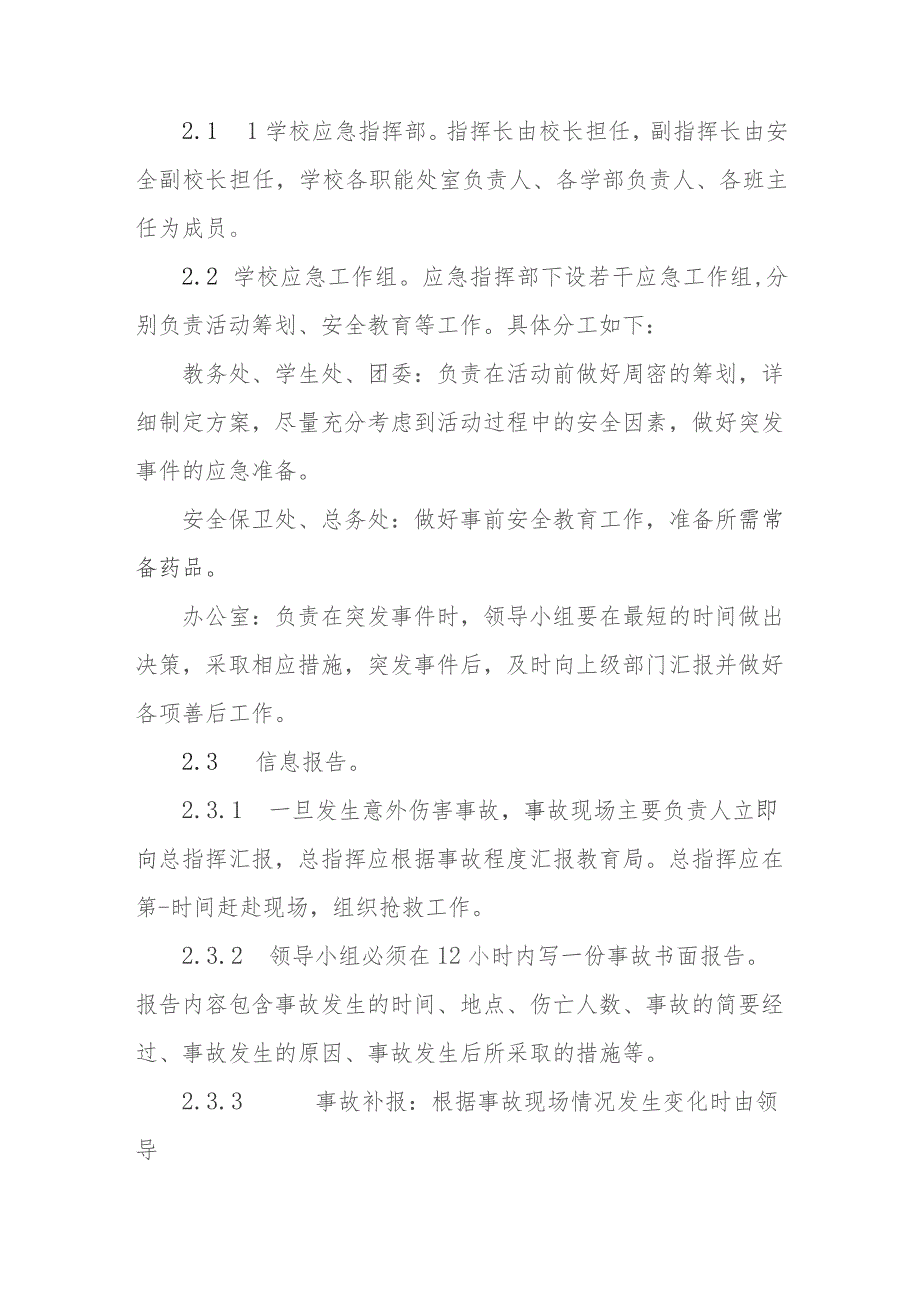 2.1 1学校应急指挥部。指挥长由校长担任，副指挥长由安
全副校长担任，学校各职能处室负责人、各学部负责人、各班主
任为成员。
2.2 学校应急工作组。应急指挥部下设若干应急工作组,分
别负责活动筹划、安全教育等工作。具体分工如下：
教务处、学生处、团委：负责在活动前做好周密的筹划，详
细制定方案，尽量充分考虑到活动过程中的安全因素，做好突发
事件的应急准备。
安全保卫处、总务处：做好事前安全教育工作，准备所需常
备药品。
办公室：负责在突发事件时，领导小组要在最短的时间做出
决策，采取相应措施，突发事件后，及时向上级部门汇报并做好
各项善后工作。
2.3 信息报告。
2.3.1 一旦发生意外伤害事故，事故现场主要负责人立即
向总指挥汇报，总指挥应根据事故程度汇报教育局。总指挥应在
第-时间赶赴现场，组织抢救工作。
2.3.2 领导小组必须在12小时内写一份事故书面报告。
报告内容包含事故发生的时间、地点、伤亡人数、事故的简要经
过、事故发生的原因、事故发生后所采取的措施等。
2.3.3 事故补报：根据事故现场情况发生变化时由领
导